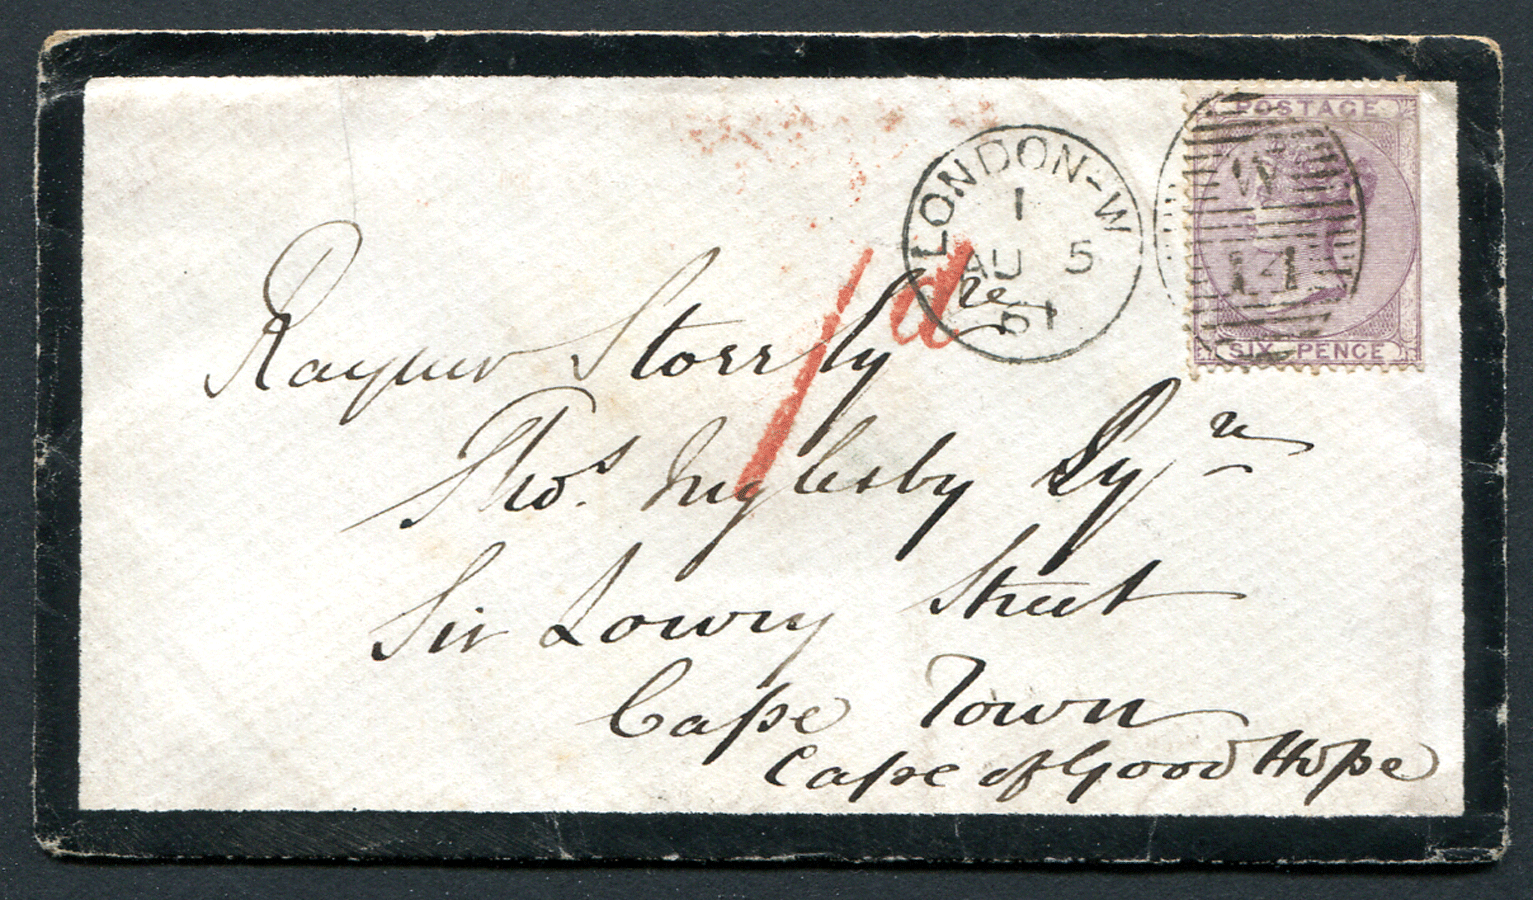 POSTAGE
W
14
SIX PENCE
LONDON-W
1
AU 5
61
1d
Rayner Storr Esqre
Thos. Inglesby Esqre
Sir Lowry Street
Cape Town
Cape of Good Hope